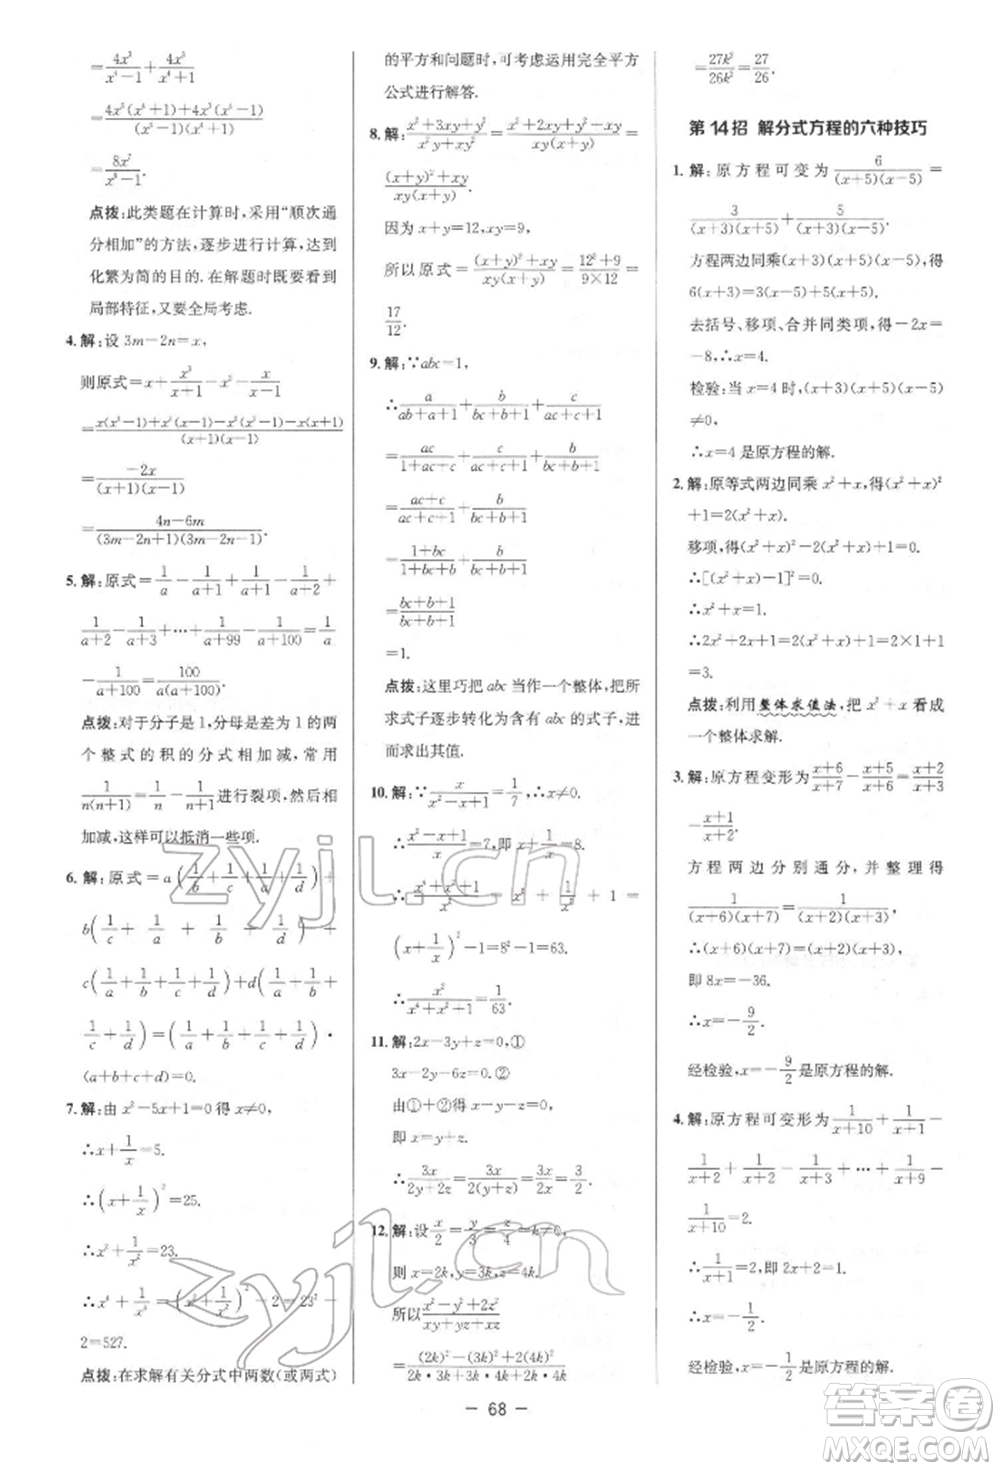 =4x³/(x⁴-1)+4x³/(x⁴+1)
=[4x³(x⁴+1)+4x³(x⁴-1)]/[(x⁴-1)(x⁴+1)]
=8x⁷/(x⁸-1).
点拨:此类题在计算时,采用“顺次通
分相加”的方法,逐步进行计算,达到
化繁为简的目的.在解题时既要看到
局部特征,又要全局考虑.
4.解:设 3m-2n=x,
则原式=x+x³/(x+1)-x²-x/(x-1)
=[x(x²-1)+x³(x-1)-x²(x²-1)-x(x+1)]/[(x+1)(x-1)]
=-2x/[(x+1)(x-1)]
=(4n-6m)/[(3m-2n+1)(3m-2n-1)].
5.解:原式=1/a-1/(a+1)+1/(a+1)-1/(a+2)+
1/(a+2)-1/(a+3)+…+1/(a+99)-1/(a+100)=1/a
-1/(a+100)=100/[a(a+100)].
点拨:对于分子是 1,分母是差为 1 的两
个整式的积的分式相加减,常用
1/[n(n+1)]=1/n-1/(n+1)进行裂项,然后相
加减,这样可以抵消一些项.
6.解:原式=a(1/b+1/c+1/d+1/a)+
b(1/c+1/a+1/d+1/b)+
c(1/a+1/b+1/d+1/c)+d(1/a+
1/b+1/c+1/d)=(1/a+1/b+1/c+1/d)·
(a+b+c+d).
7.解:由 x²-5x+1=0 得 x≠0,
∴x+1/x=5.
∴(x+1/x)²=25.
∴x²+1/x²=23.
∴x⁴+1/x⁴=(x²+1/x²)²-2=23²-
2=527.
点拨:在求解有关分式中两数(或两式)
的平方和问题时,可考虑运用完全平方
公式进行解答.
8.解:(x²+3xy+y²)/(x²y+xy²)=(x²+2xy+y²+xy)/[xy(x+y)]=
[(x+y)²+xy]/[xy(x+y)].
因为 x+y=12,xy=9,
所以原式=[(x+y)²+xy]/[xy(x+y)]=(12²+9)/(9×12)=
17/12.
9.解:∵abc=1,
∴a/(ab+a+1)+b/(bc+b+1)+c/(ac+c+1)
=ac/(1+ac+c)+c/(ac+c+1)+b/(bc+b+1)
=(ac+c)/(ac+c+1)+b/(bc+b+1)
=(1+bc)/(bc+b+1)+b/(bc+b+1)
=(bc+b+1)/(bc+b+1)
=1.
点拨:这里巧把 abc 当作一个整体,把所
求式子逐步转化为含有 abc 的式子,进
而求出其值.
10.解:∵x/(x²-x+1)=1/7,∴x≠0.
∴(x²-x+1)/x=7,即 x+1/x=8.
∴(x⁴+x²+1)/x²=x²+1/x²+1=
(x+1/x)²-1=8²-1=63.
∴x²/(x⁴+x²+1)=1/63.
11.解:2x-3y+z=0,①
3x-2y-6z=0.②
由①+②得 x-y-z=0,
即 x=y+z.
∴3x/(2y+2z)=3x/[2(y+z)]=3x/2x=3/2.
12.解:设x/2=y/3=z/4=k≠0,
则 x=2k,y=3k,z=4k.
所以(x²-y²+2z²)/(xy+yz+xz)
=[(2k)²-(3k)²+2(4k)²]/(2k·3k+3k·4k+2k·4k)
=27k²/26k²=27/26.
第 14 招 解分式方程的六种技巧
1.解:原方程可变为6/[(x+5)(x-5)]=
3/[(x+3)(x+5)]+5/[(x+3)(x-5)].
方程两边同乘(x+3)(x+5)(x-5),得
6(x+3)=3(x-5)+5(x+5).
去括号、移项、合并同类项,得-2x=
-8,∴x=4.
检验:当 x=4 时,(x+3)(x+5)(x-5)
≠0,
∴x=4 是原方程的解.
2.解:原等式两边同乘 x²+x,得(x²+x)²
+1=2(x²+x).
移项,得(x²+x)²-2(x²+x)+1=0.
∴[(x²+x)-1]²=0.
∴x²+x=1.
∴2x²+2x+1=2(x²+x)+1=2×1+1
=3.
点拨:利用整体求值法,把 x²+x 看成
一个整体求解.
3.解:原方程变形为(x+6)/(x+7)-(x+5)/(x+6)=(x+2)/(x+3)
-(x+1)/(x+2).
方程两边分别通分,并整理得
1/[(x+6)(x+7)]=1/[(x+2)(x+3)].
∴(x+6)(x+7)=(x+2)(x+3),
即 8x=-36.
∴x=-9/2.
经检验,x=-9/2是原方程的解.
4.解:原方程可变形为1/(x+10)+1/(x+1)-
1/(x+2)+1/(x+2)-…+1/(x+9)-
1/(x+10)=2.
∴1/(x+1)=2,即 2x+2=1.
∴x=-1/2.
经检验,x=-1/2是原方程的解.
— 68 —
zyjl.cn
zyjl.cn
答案圈
MXQE.COM